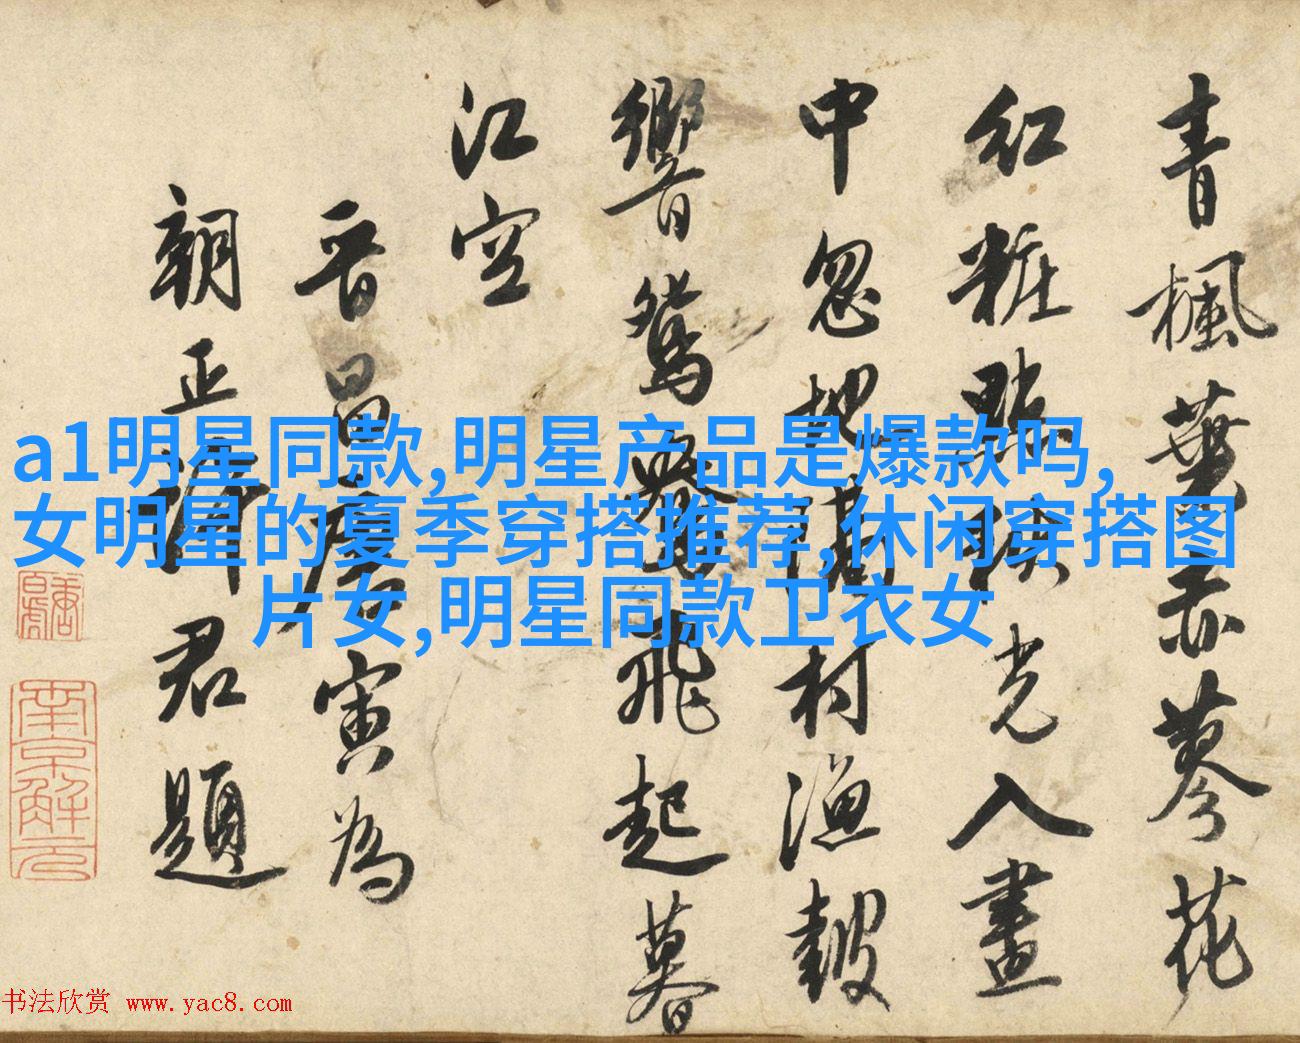 青楓葉赤蓼花
紅粧點秋光入畫
中忽地滿村漁鼓
響鴛鴦飛起暮
江空
晉昌唐寅為
朝正君題
南京解元
a1明星同款,明星产品是爆款吗,
女明星的夏季穿搭推荐,休闲穿搭图
片女,明星同款卫衣女
书法欣赏 www.yac8.com